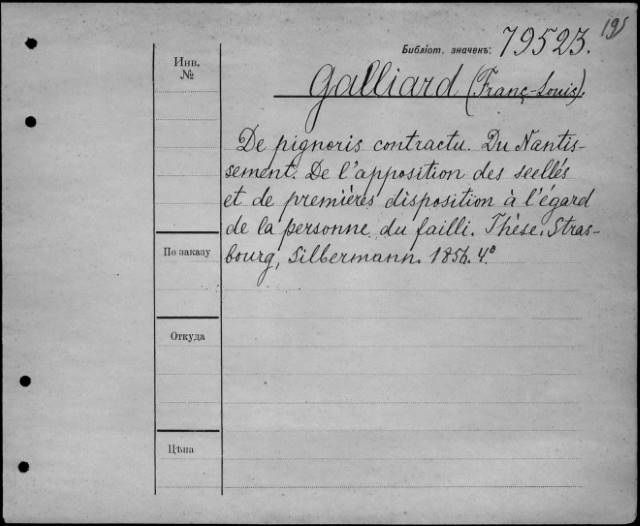 195
Библіот. значекъ: 79523.
Инв.
№
Galliard (Franç-Louis).
De pignoris contractu. Du Nantis-
sement. De l'apposition des scellés
et de premières disposition à l'égard
de la personne du failli. Thèse. Stras-
По заказу
bourg, Silbermann. 1856. 4°
Откуда
Цѣна